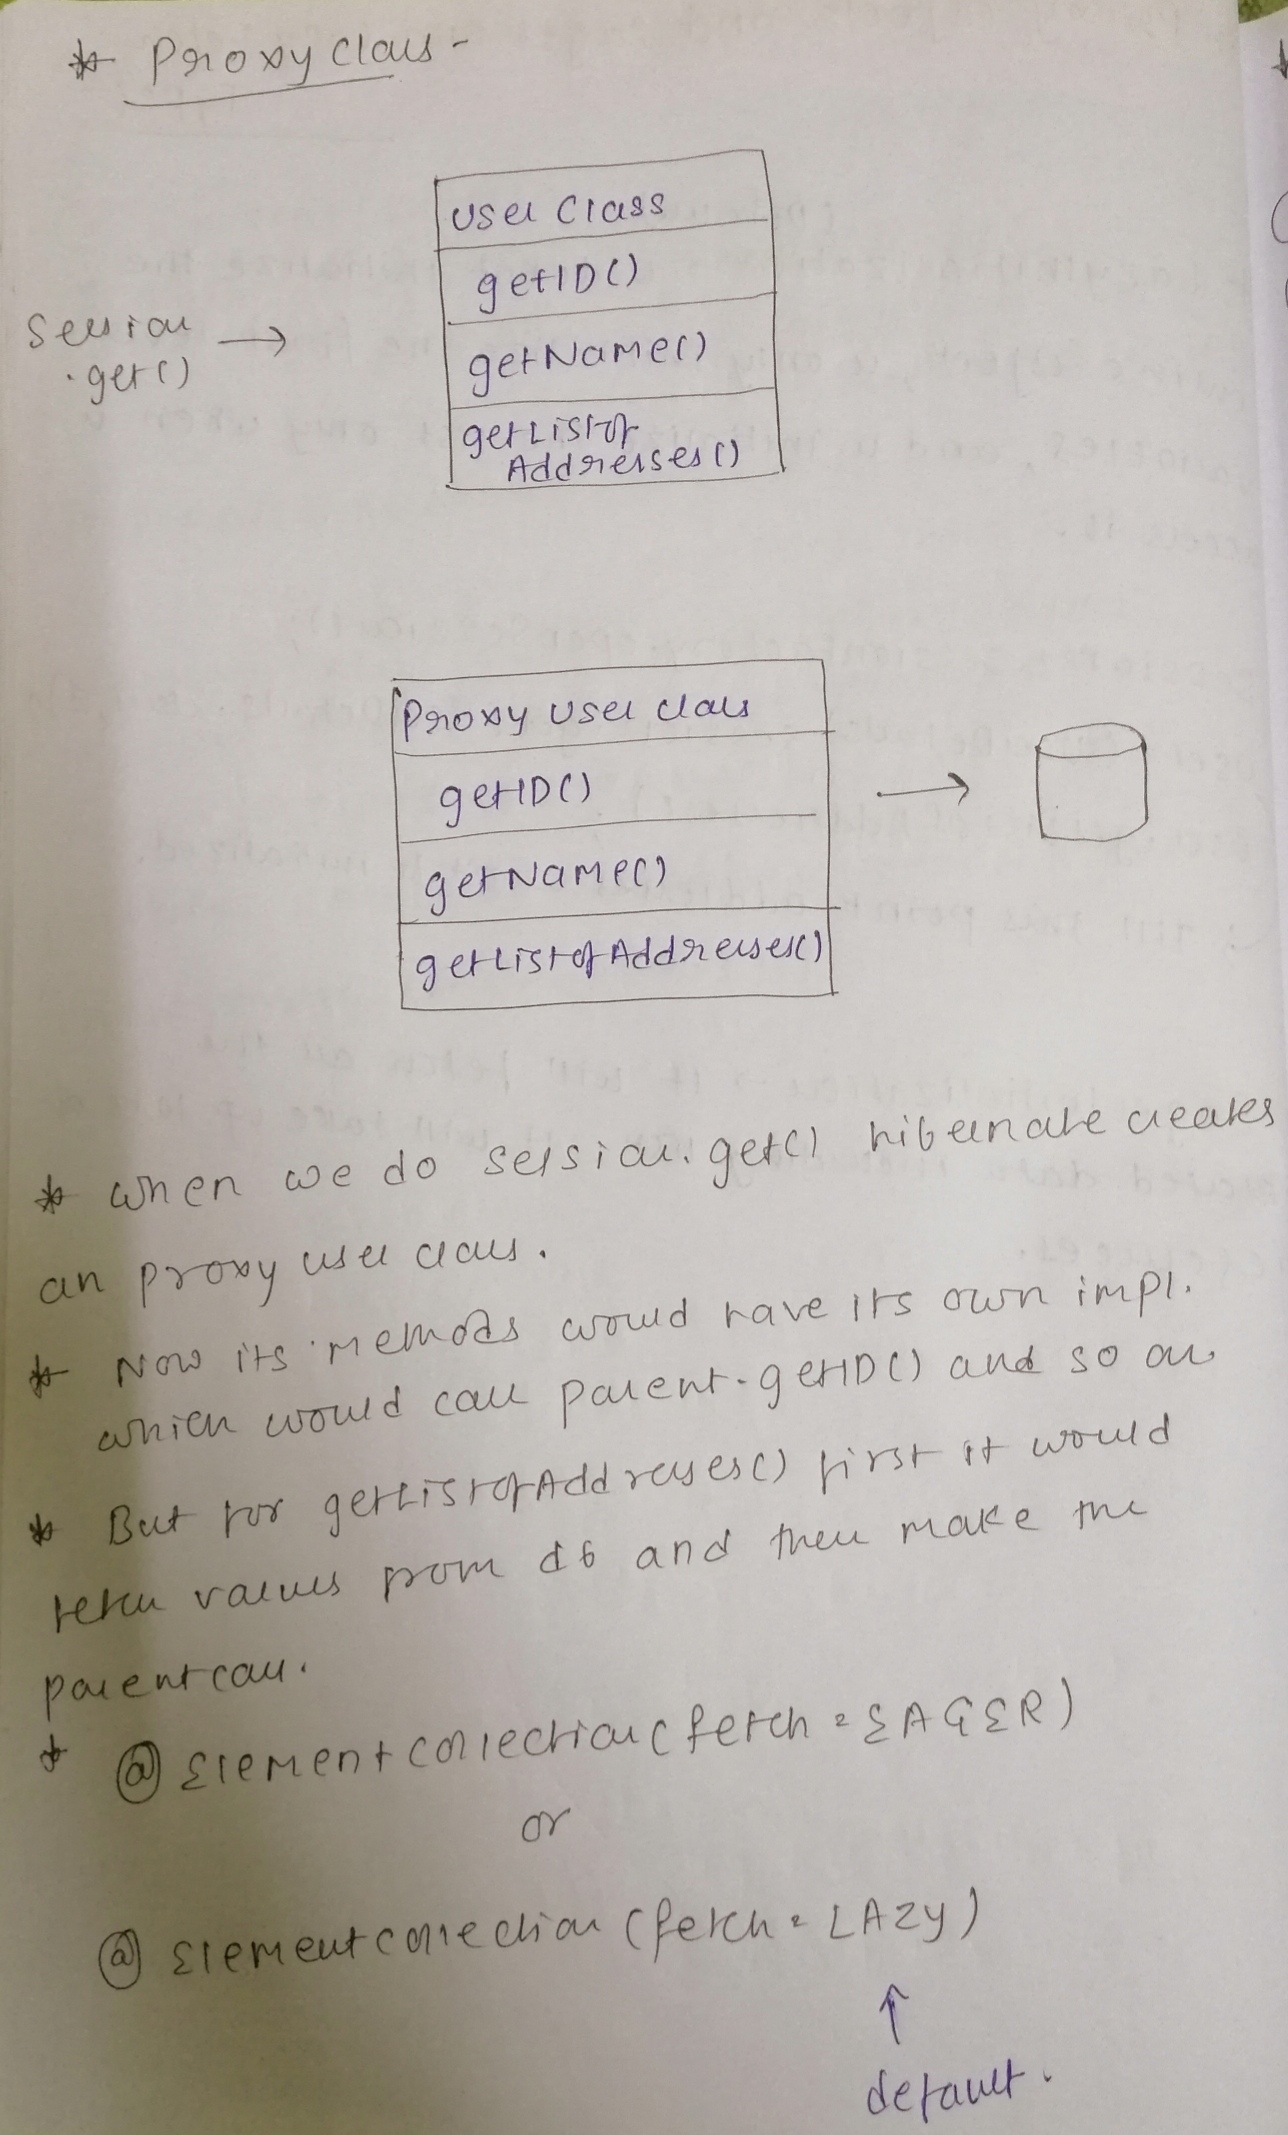 * Proxy class -
User Class
getID()
session
.get()
getName()
getListof
Addresses()
Proxy User class
getID()
getName()
getListofAddresses()
* when we do session.get() hibernate creates
an proxy user class.
* Now its methods would have its own impl.
which would call parent.getID() and so on
* But for getListofAddresses() first it would
fetch values from db and then make the
parent call.
* @ElementCollection (fetch = EAGER)
or
@ElementCollection (fetch = LAZY)
↑
default.